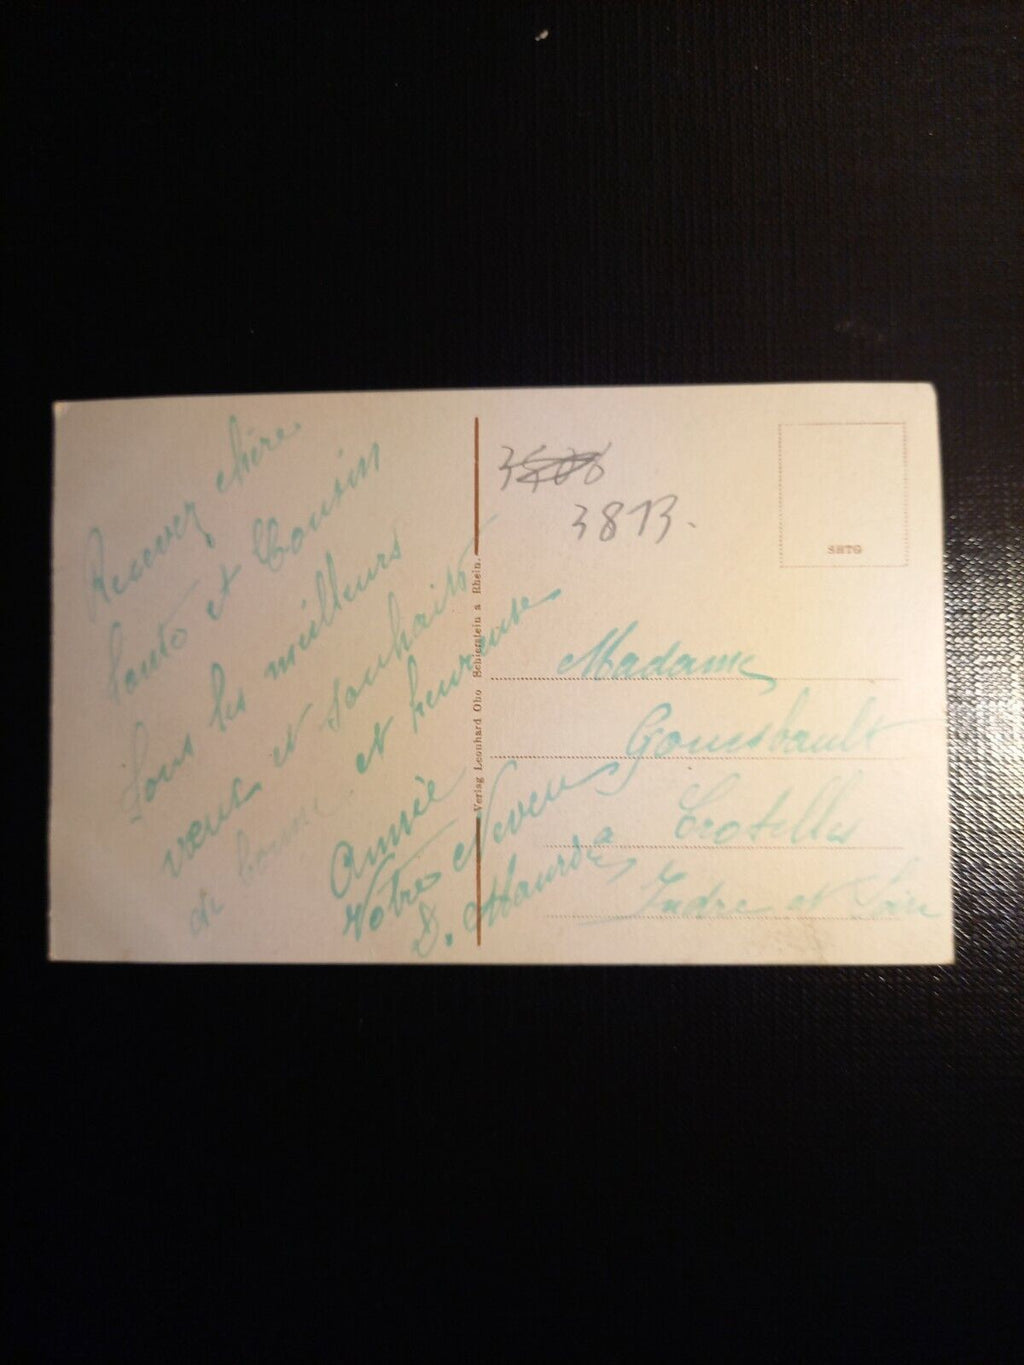 Recevez chère
tante et Cousin
tous les meilleurs
vœux et souhaits
de bonne et heureuse
Année
Votre Neveu
D. Maurice
Verlag Leonhard Oho Schierstein a Rhein.
3813.
SHTG
Madame
Gombault
à Crotelles
Indre et Loire